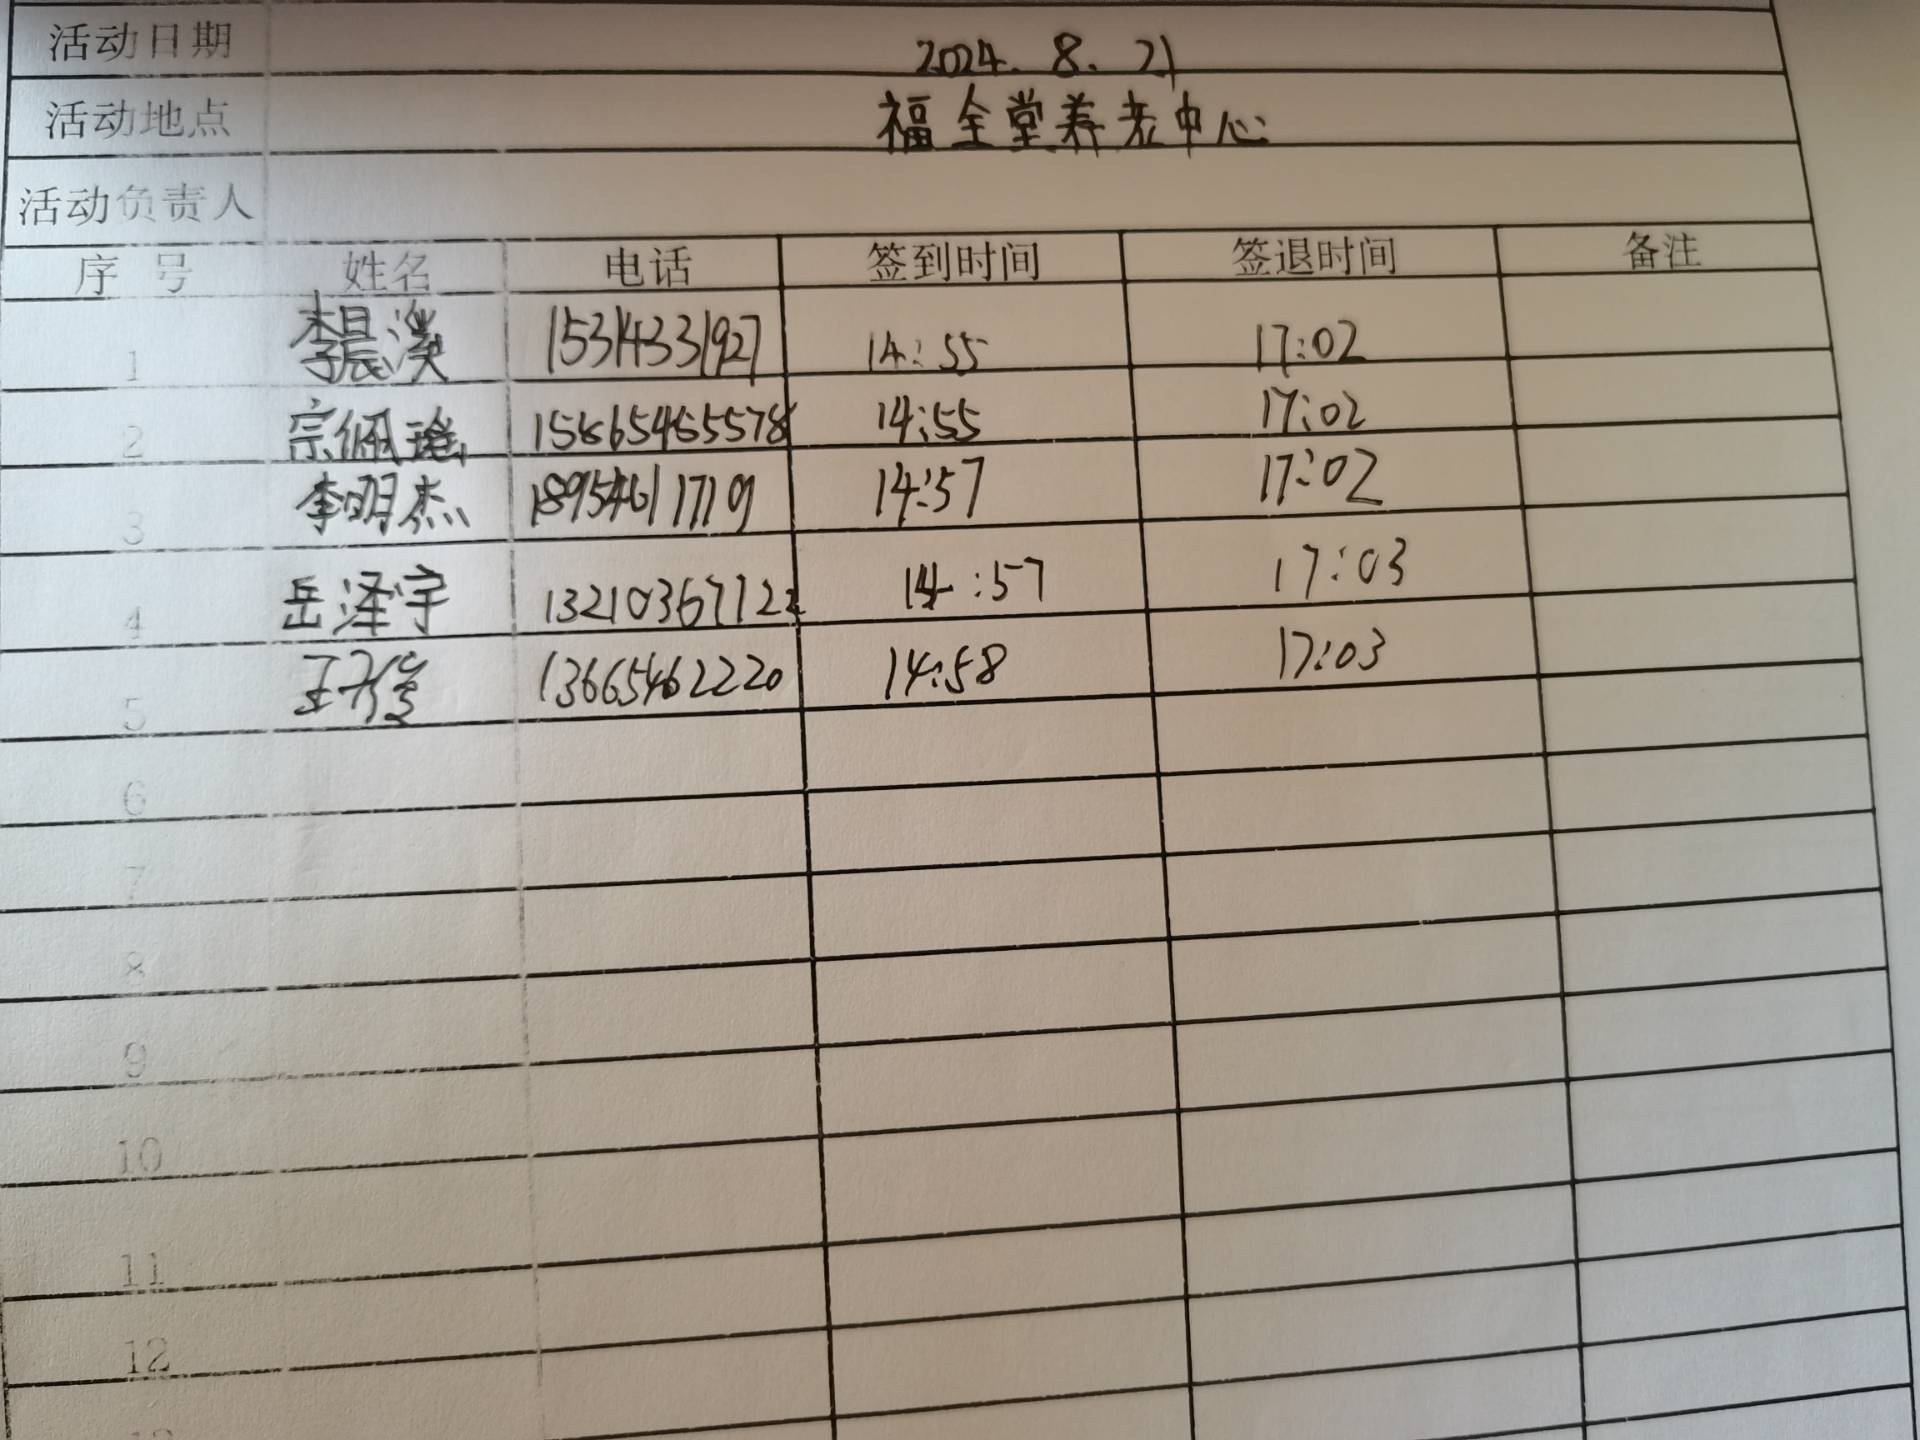 活动日期 2024.8.21
活动地点 福全堂养老中心
活动负责人
序号 姓名 电话 签到时间 签退时间 备注
1 李晨漠 15314331927 14:55 17:02
2 宗佩瑶 14:55 17:02
3 李明杰 18954611719 14:57 17:02
4 岳泽宇 13210367122 14:57 17:03
5 王 13665462220 14:58 17:03
6
7
8
9
10
11
12